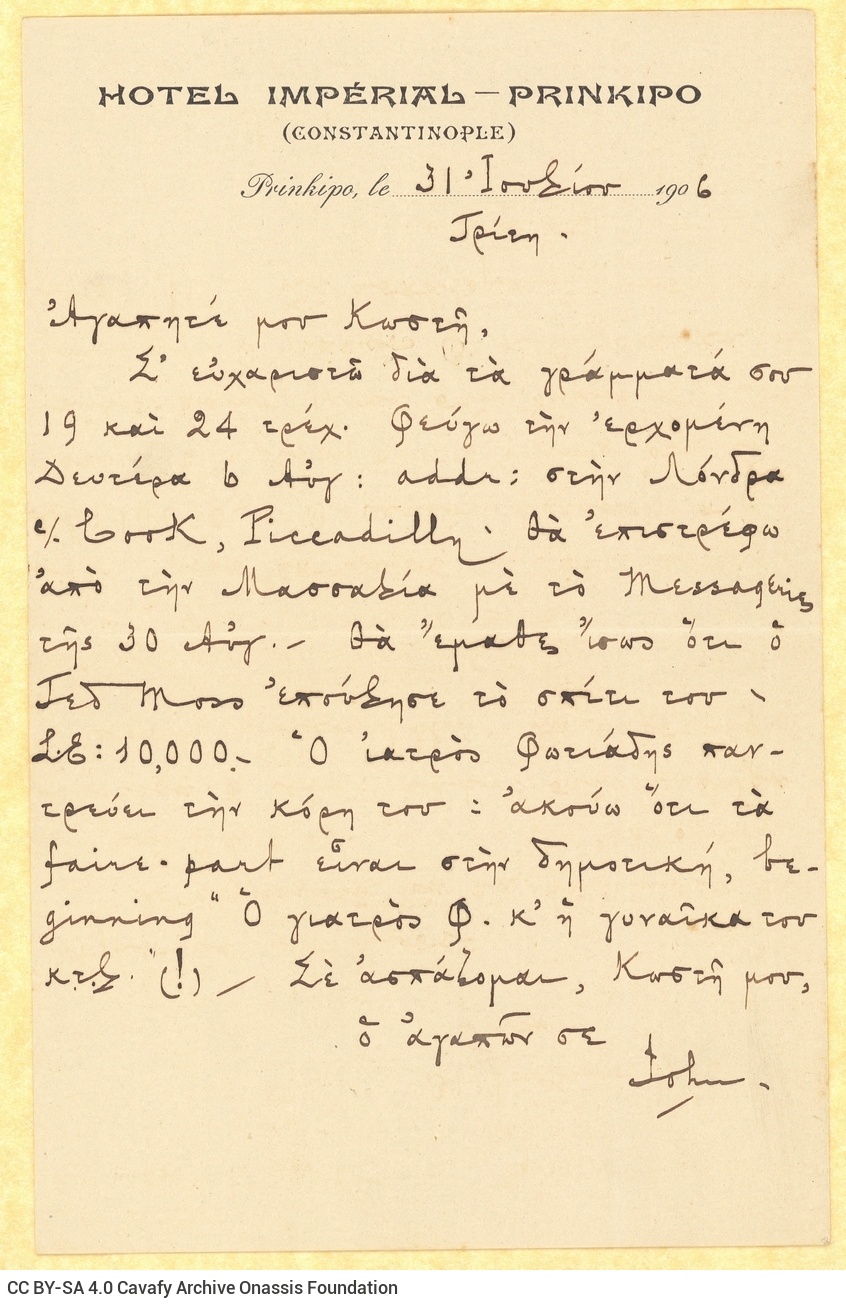 HOTEL IMPÉRIAL — PRINKIPO
(CONSTANTINOPLE)
Prinkipo, le 31 Ἰουλίου 1906
Τρίτη.
Ἀγαπητέ μου Κωστῆ,
Σ' εὐχαριστῶ διὰ τὰ γράμματά σου
19 καὶ 24 τρέχ. Φεύγω τὴν ἐρχομένη
Δευτέρα 6 Αὔγ: addr: στὴν Λόνδρα
c/. Cook, Piccadilly· θὰ ἐπιστρέφω
ἀπὸ τὴν Μασσαλία μὲ τὸ Messageries
τῆς 30 Αὔγ. – θὰ ἔμαθες ἴσως ὅτι ὁ
Ted Moss ἐπούλησε τὸ σπίτι του
L.E: 10,000. – Ὁ ἰατρὸς Φωτιάδης παν-
τρεύει τὴν κόρη του: ἀκούω ὅτι τὰ
faire-part εἶναι στὴν δημοτική, be-
ginning "Ὁ γιατρὸς Φ. κ' ἡ γυναῖκα του
κ.τ.λ." (!) – Σὲ ἀσπάζομαι, Κωστῆ μου,
ὁ ἀγαπῶν σε
John.
CC BY-SA 4.0 Cavafy Archive Onassis Foundation